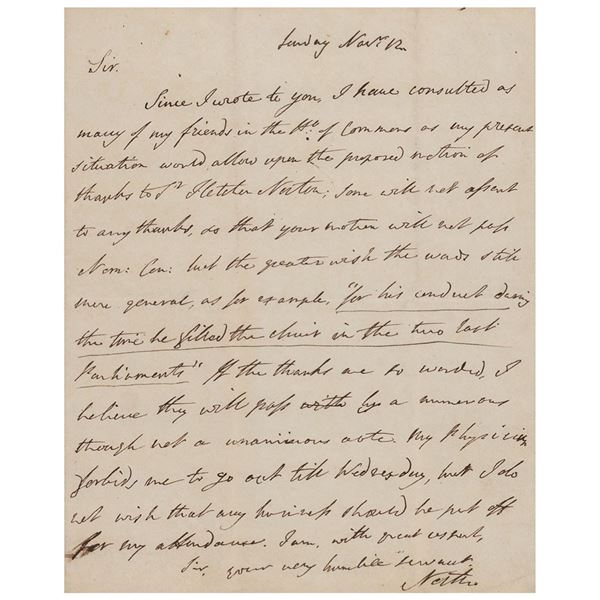 Sunday Novr. 12
Sir.
Since I wrote to you, I have consulted as
many of my friends in the Ho: of Commons as my present
situation would allow upon the proposed motion of
thanks to Sr Fletcher Norton; some will not assent
to any thanks, so that your motion will not pass
Nem: Con: but the greater wish the words still
more general, as for example, "for his conduct during
the time he filled the chair in the two last
Parliaments" If the thanks are so worded, I
believe they will pass with by a numerous
though not a unanimous vote. My Physician
forbids me to go out till Wednesday, but I do
not wish that any business should be put off
for my attendance. I am, with great respect,
Sir, your very humble servant
North